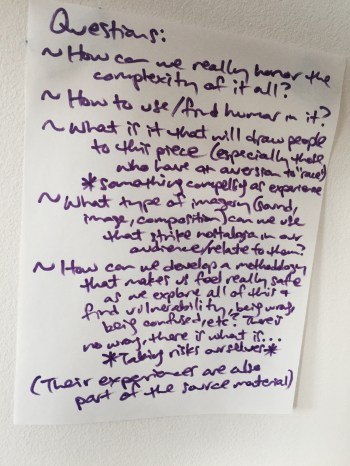 Questions:
~ How can we really honor the
complexity of it all?
~ How to use/find humor in it?
~ What is it that will draw people
to this piece (especially those
who have an aversion to "race")
* something compelling as experience
~ What type of imagery (sound,
image, composition) can we use
that strike nostalgia in our
audience/relate to them?
~ How can we develop a methodology
that makes us feel really safe
as we explore all of this &
find vulnerability, being wrong,
being confused, etc? There is
no wrong, there is what is...
*Taking risks ourselves*
(Their experiences are also
part of the source material)